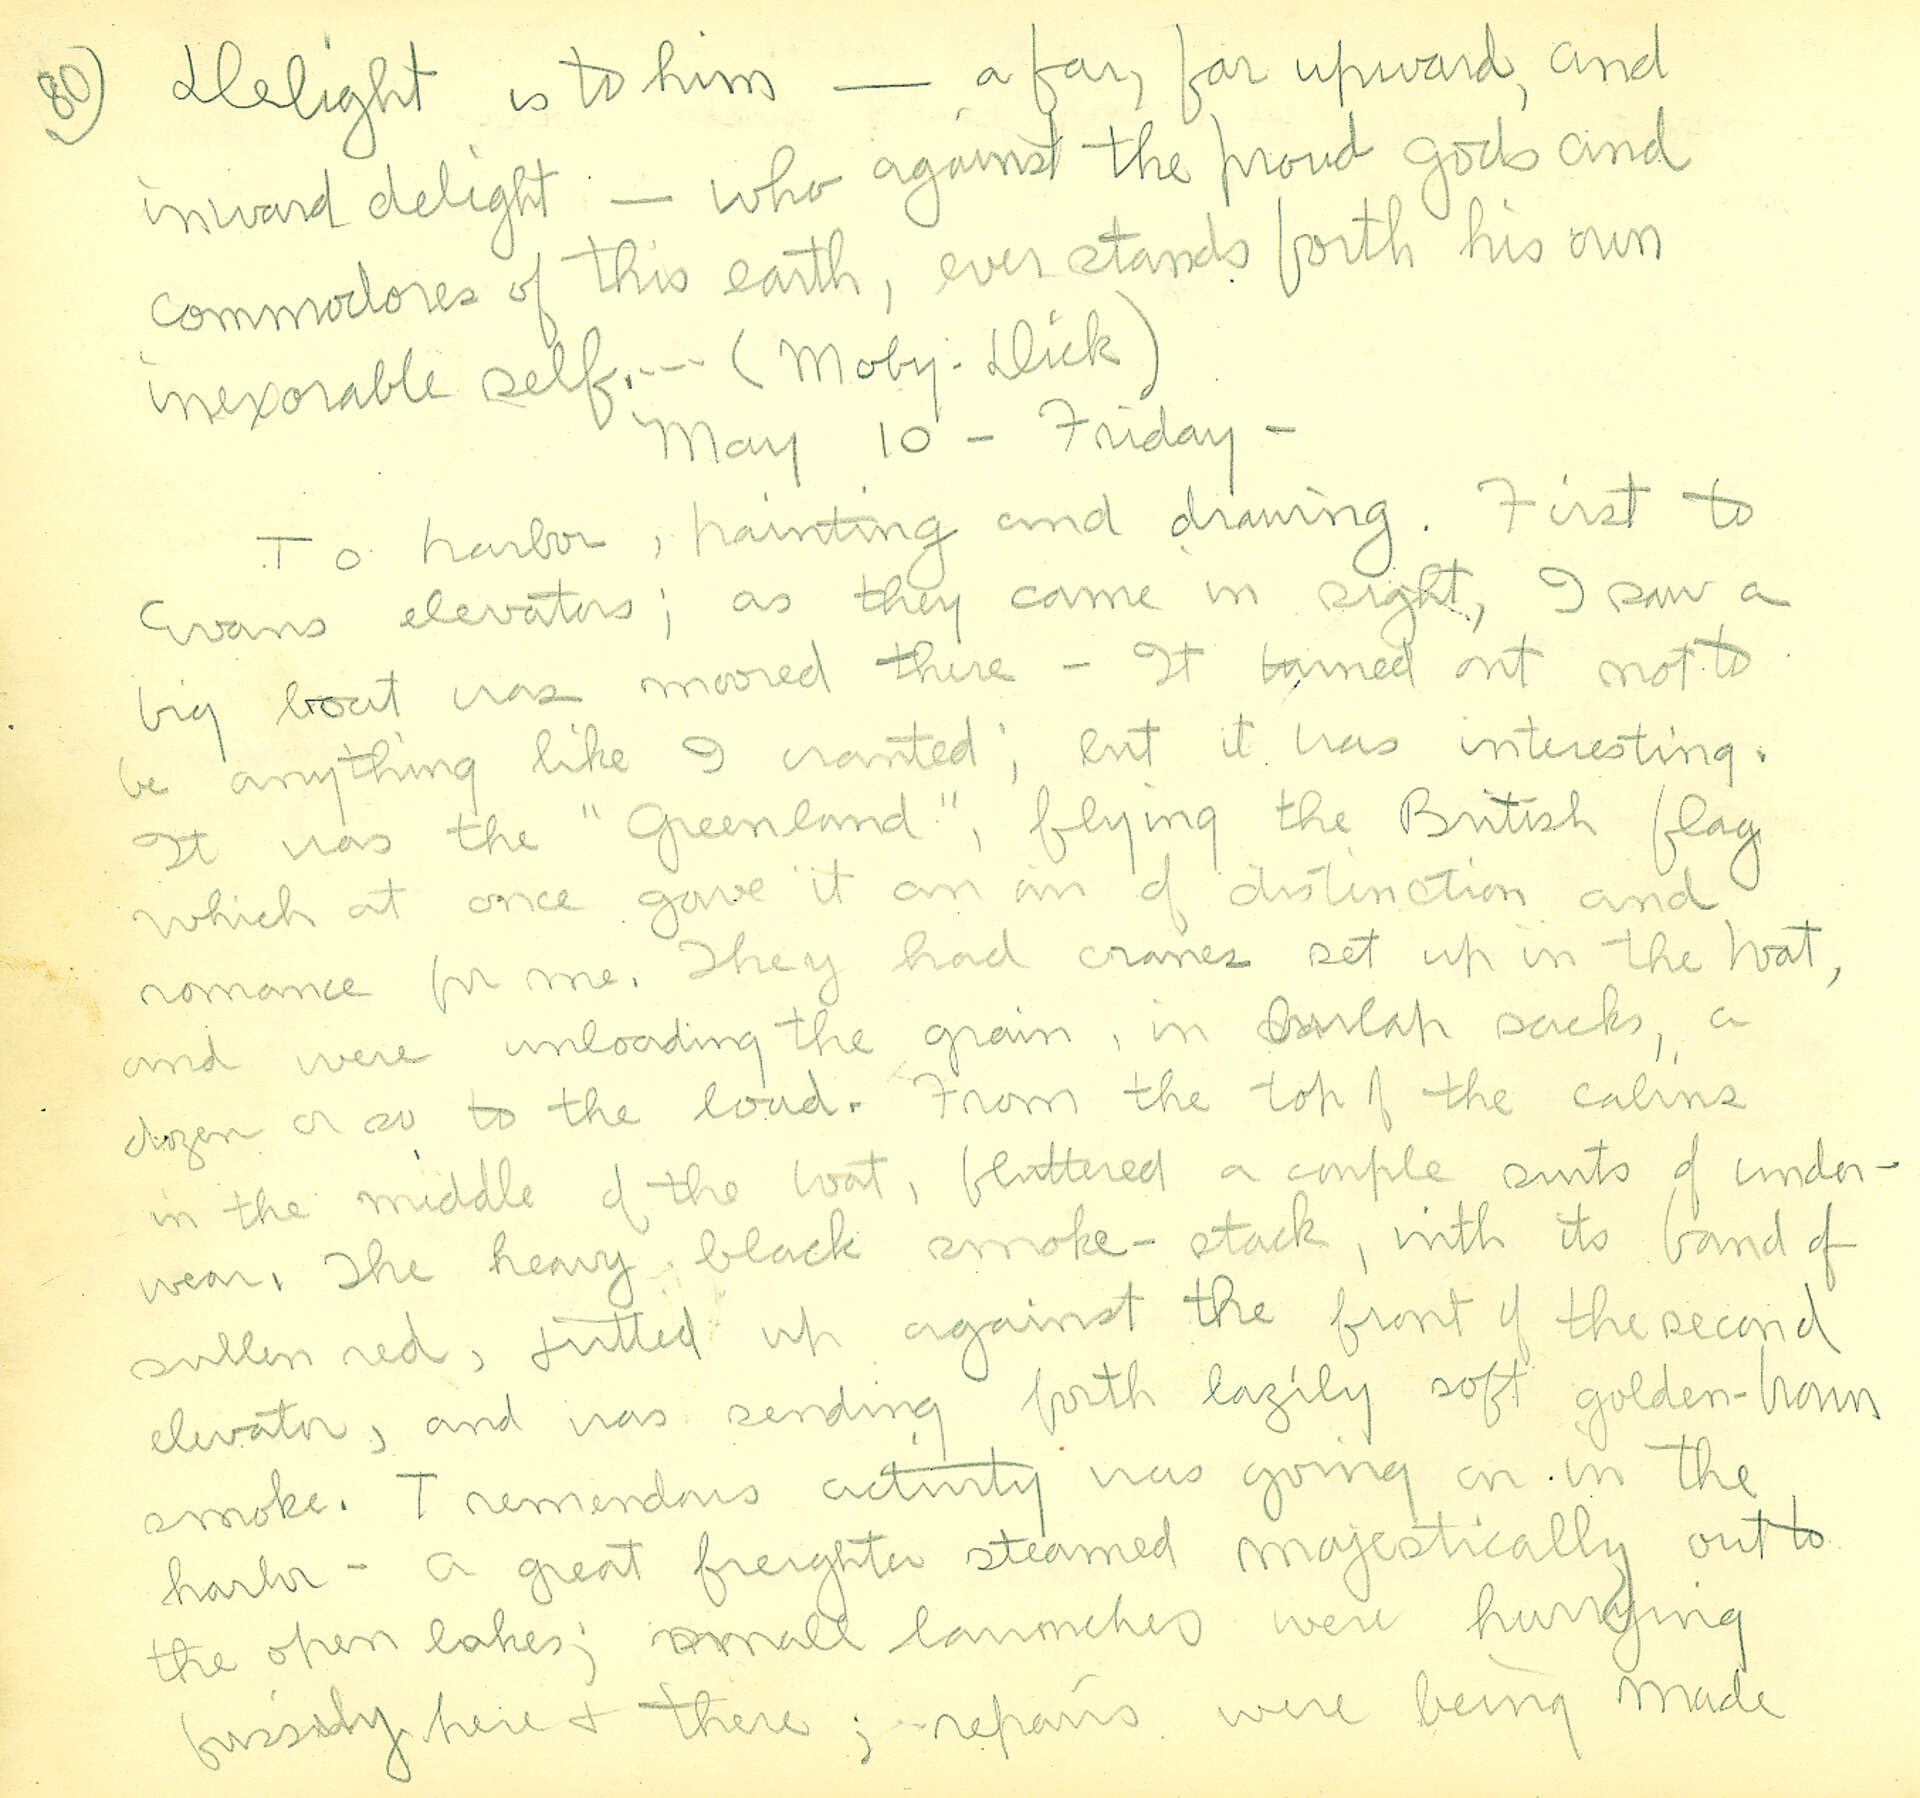 80) Delight is to him — a far, far upward, and
inward delight — who against the proud gods and
commodores of this earth, ever stands forth his own
inexorable self.--- (Moby-Dick)
May 10 - Friday -
To harbor, painting and drawing. First to
Evans elevators; as they came in sight, I saw a
big boat was moored there - It turned out not to
be anything like I wanted; but it was interesting.
It was the "Greenland", flying the British flag
which at once gave it an air of distinction and
romance for me. They had cranes set up in the boat,
and were unloading the grain, in burlap sacks, a
dozen or so to the load. From the top of the cabins
in the middle of the boat, fluttered a couple suits of under-
wear. The heavy black smoke-stack, with its band of
sullen red, jutted up against the front of the second
elevator, and was sending forth lazily soft golden-brown
smoke. Tremendous activity was going on in the
harbor - a great freighter steamed majestically out to
the open lakes; small launches were hurrying
fussily here & there; repairs were being made